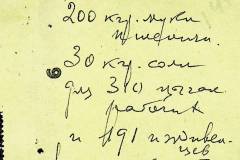 200 кгр. муки
пшенич.
30 кгр. соли
для 310 цыган
рабочих
и 191 иждивен-
цев